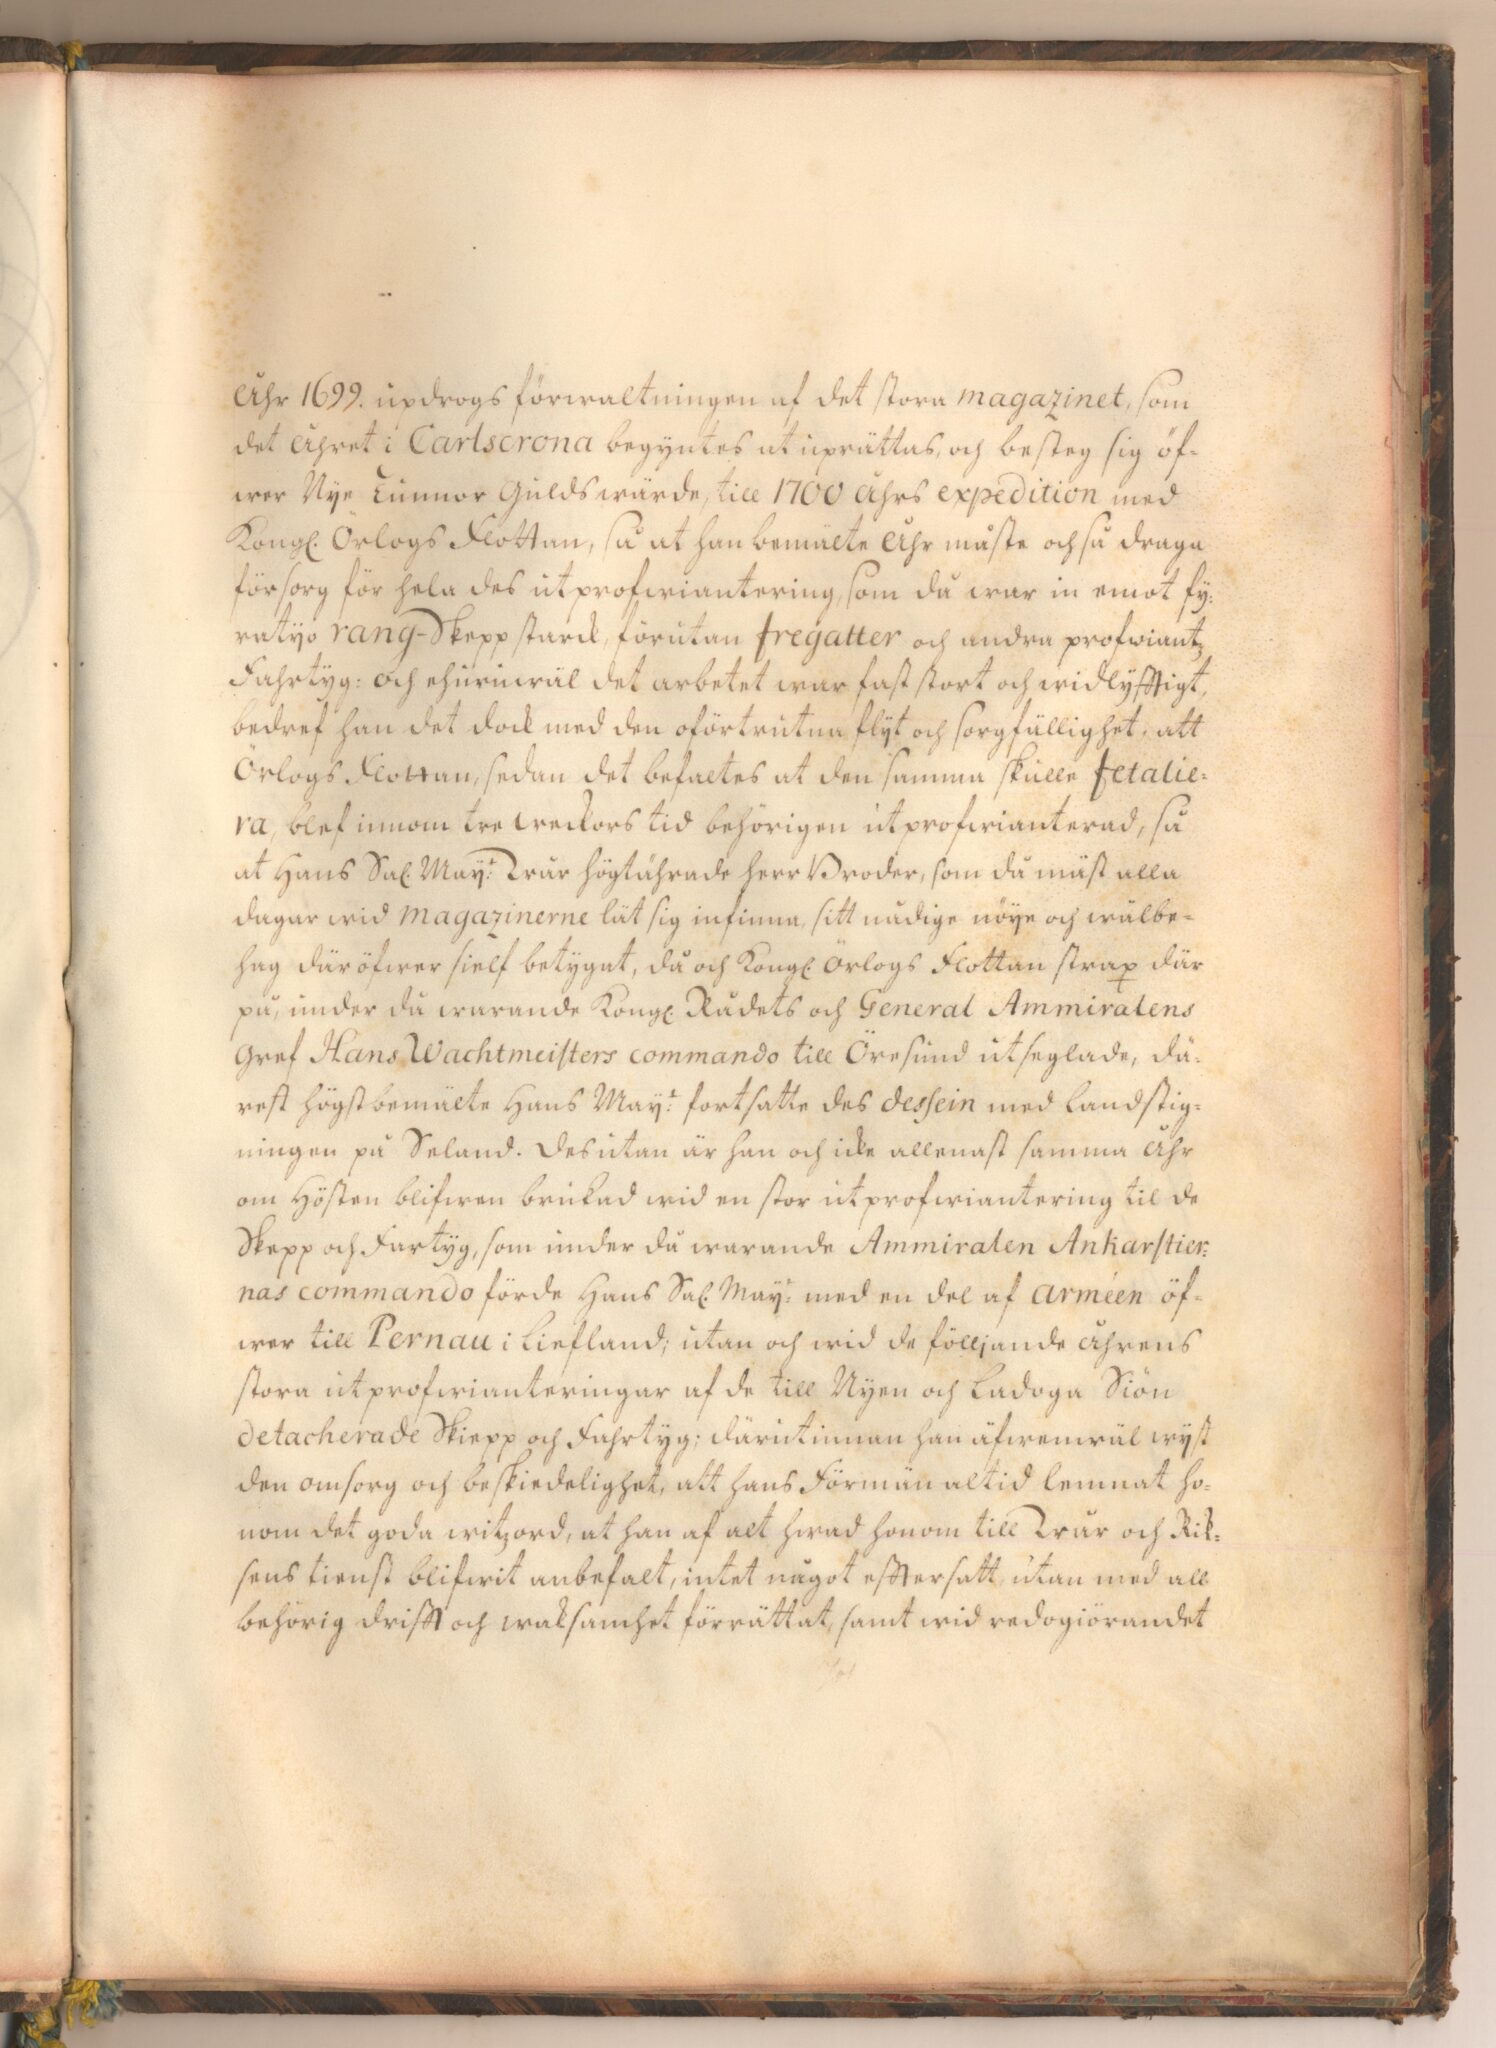 Åhr 1699. updrogs förwaltningen af det stora magazinet, som
det åhret i Carlscrona begyntes at uprättas, och besteg sig öf-
wer Nye Tunnor Gulds wärde, till 1700 åhrs expedition med
Kongl. Örlogs Flottan, så at han bemälte Åhr måste och så draga
försorg för hela des utprofwiantering, som då war in emot fy-
ratyo rang-Skepp starck, förutan fregatter och andra profwiantz
Fahrtyg: och ehuruwäl det arbetet war fast stort och widlyfftigt,
bedref han det dock med den oförtrutna flÿt och sorgfällighet, att
Örlogs Flottan, sedan det befaltes at den samma skulle fetalie-
ra, blef innom tre weckors tid behörigen utprofwianterad, så
at Hans Sal. Mayt: Wår högtährade herr Broder, som då mäst alla
dagar wid magazinerne lät sig infinna, sitt nådige nöye och wälbe-
hag däröfwer sielf betygat, då och Kongl. Örlogs Flottan strax där
på, under då warande Kongl. Rådets och General Ammiralens
Gref Hans Wachtmeisters commando till Öresund utseglade, dä-
rest högstbemälte Hans Mayt: fortsatte des dessein med landstig-
ningen på Seland. Desutan är han och icke allenast samma Åhr
om Hösten blifwen brukad wid en stor utprofwiantering til de
Skepp och Fartyg, som under då warande Ammiralen Ankarstier-
nas commando förde Hans Sal. Mayt: med en del af arméen öf-
wer till Pernau i Liefland; utan och wid de följande åhrens
stora utprofwianteringar af de till Nyen och Ladoga Siön
detacherade Skiepp och Fahrtyg; därutinnan han äfwenwäl wyst
den omsorg och beskiedelighet, att hans Förmän altid lemnat ho-
nom det goda witzord, at han af alt hwad honom till Wår och Rik-
sens tienst blifwit anbefalt, intet något efftersatt, utan med all
behörig drifft och waksamhet förrättat, samt wid redogiörandet